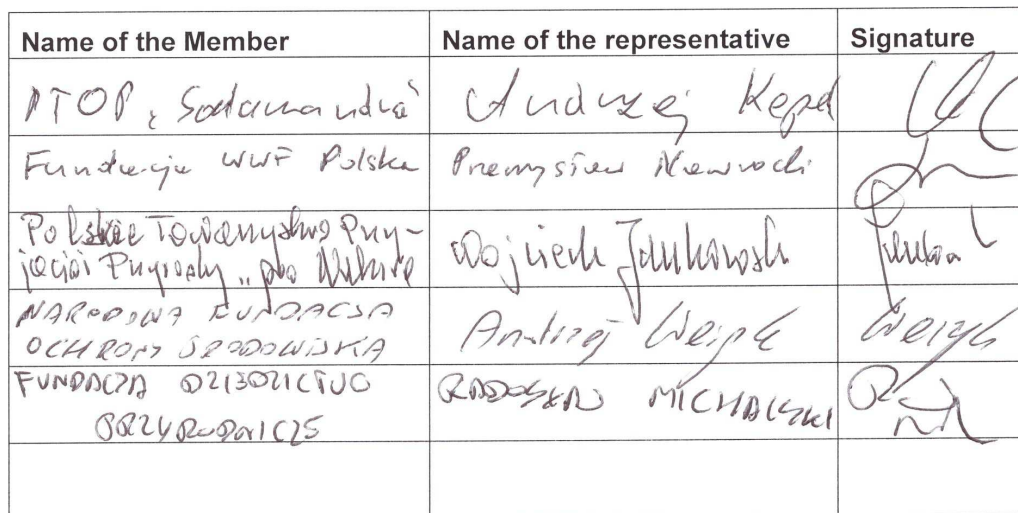 Name of the Member Name of the representative Signature
PTOP „Salamandra” Andrzej Kepel
Fundacja WWF Polska Przemysław Nawrocki
Polskie Towarzystwo Przy-
jaciół Przyrody „pro Natura” Wojciech Jankowski
NARODOWA FUNDACJA
OCHRONY ŚRODOWISKA Andrzej Weigle
FUNDACJA DZIEDZICTWO RADOSŁAW MICHALSKI
PRZYRODNICZE